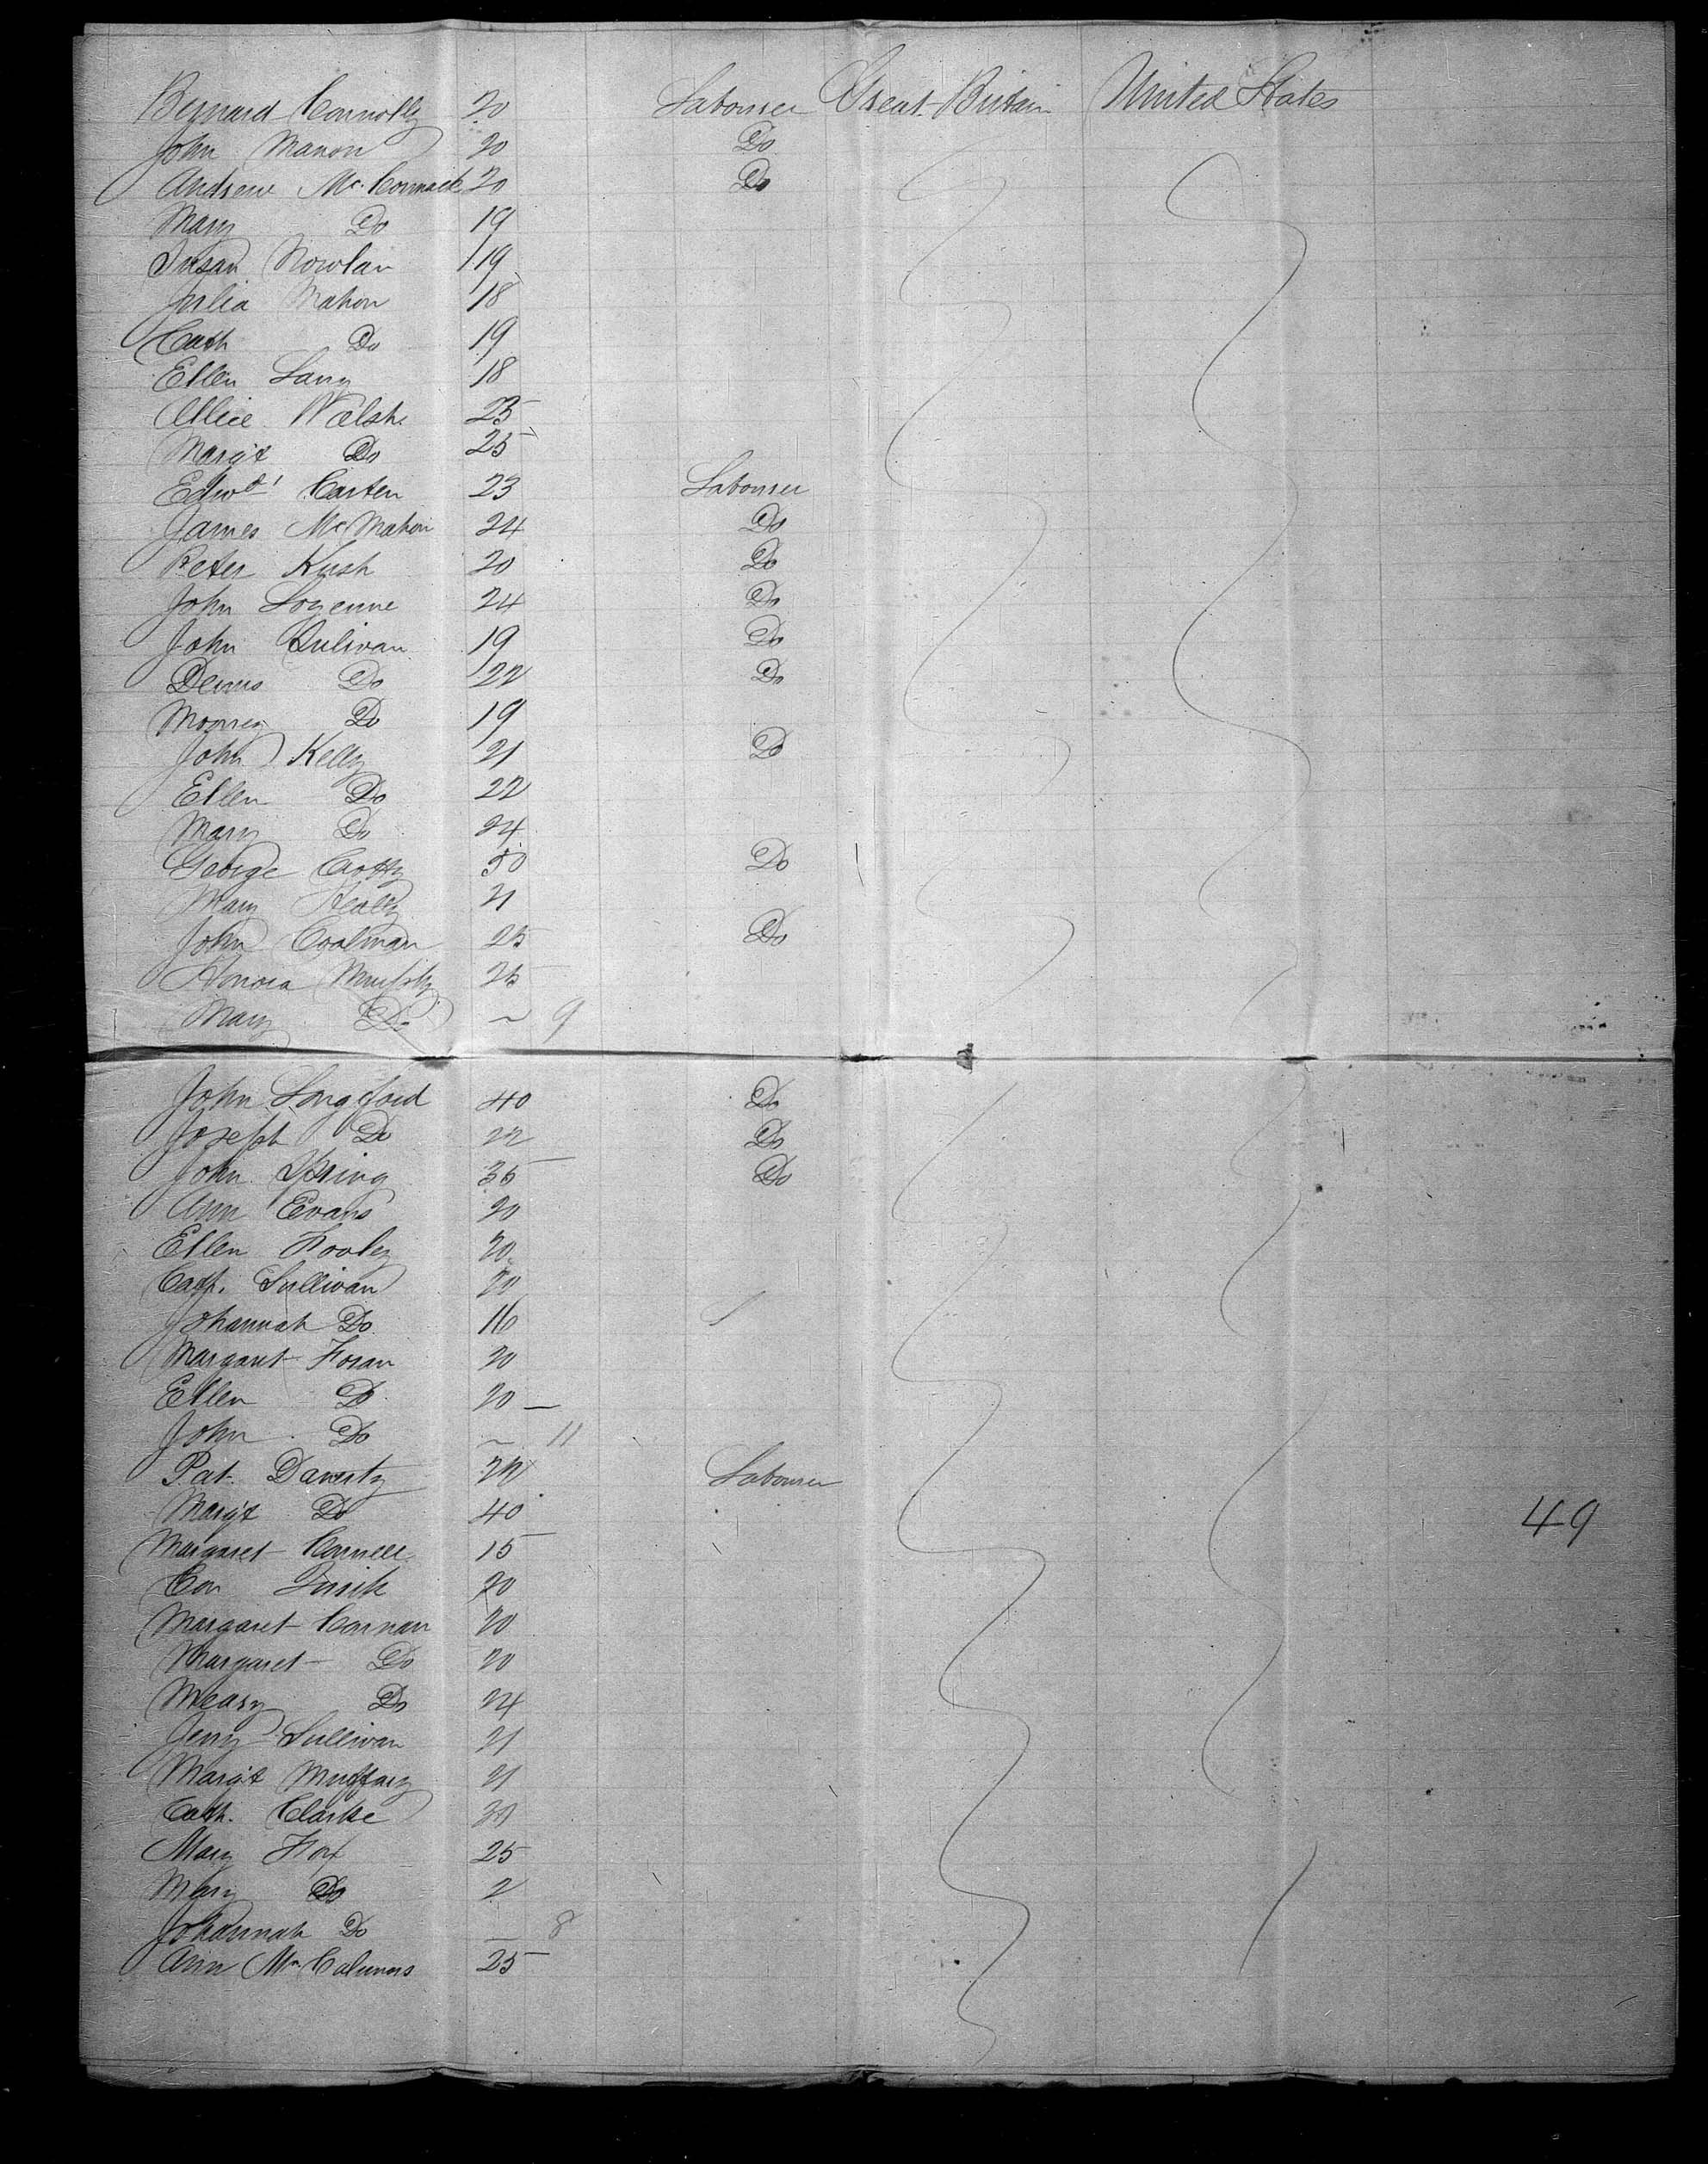 Bernard Connolly 20 Labourer Great Britain United States
John Manon 20 Do
Andrew Mc. Cormack 20 Do
Mary Do 19
Susan Nowlan 19
Julia Mahon 18
Cath Do 19
Ellen Lany 18
Allice Walsh 25
Margt Do 25
Edwd Carten 23 Labourer
James McMahon 24 Do
Peter Kush 20 Do
John 24 Do
John Sulivan 19 Do
Dennis Do 22 Do
Do 19
John Kelly 21 Do
Ellen Do 22
Mary Do 24
George 50 Do
Mary Healy 21
John Coolman 25 Do
Honora Murphy 25
Mary Do ~ 9
John Longford 40 Do
Joseph Do 22 Do
John Spring 35 Do
Ann Evans 20
Ellen Fooley 20
Cath. Sullivan 20
Johannah Do 16
Margaret Foran 20
Ellen Do 20
John Do ~ 11
Pat. Labourer
Margt Do 40
Margaret 15
Con 20
Margaret 20
Margaret Do 20
Do 24
Jerry Sullivan 21
Margt 21
Cath. Clarke 30
Mary Fox 25
Mary Do 2
Johannah Do — 8
Ann 25
49